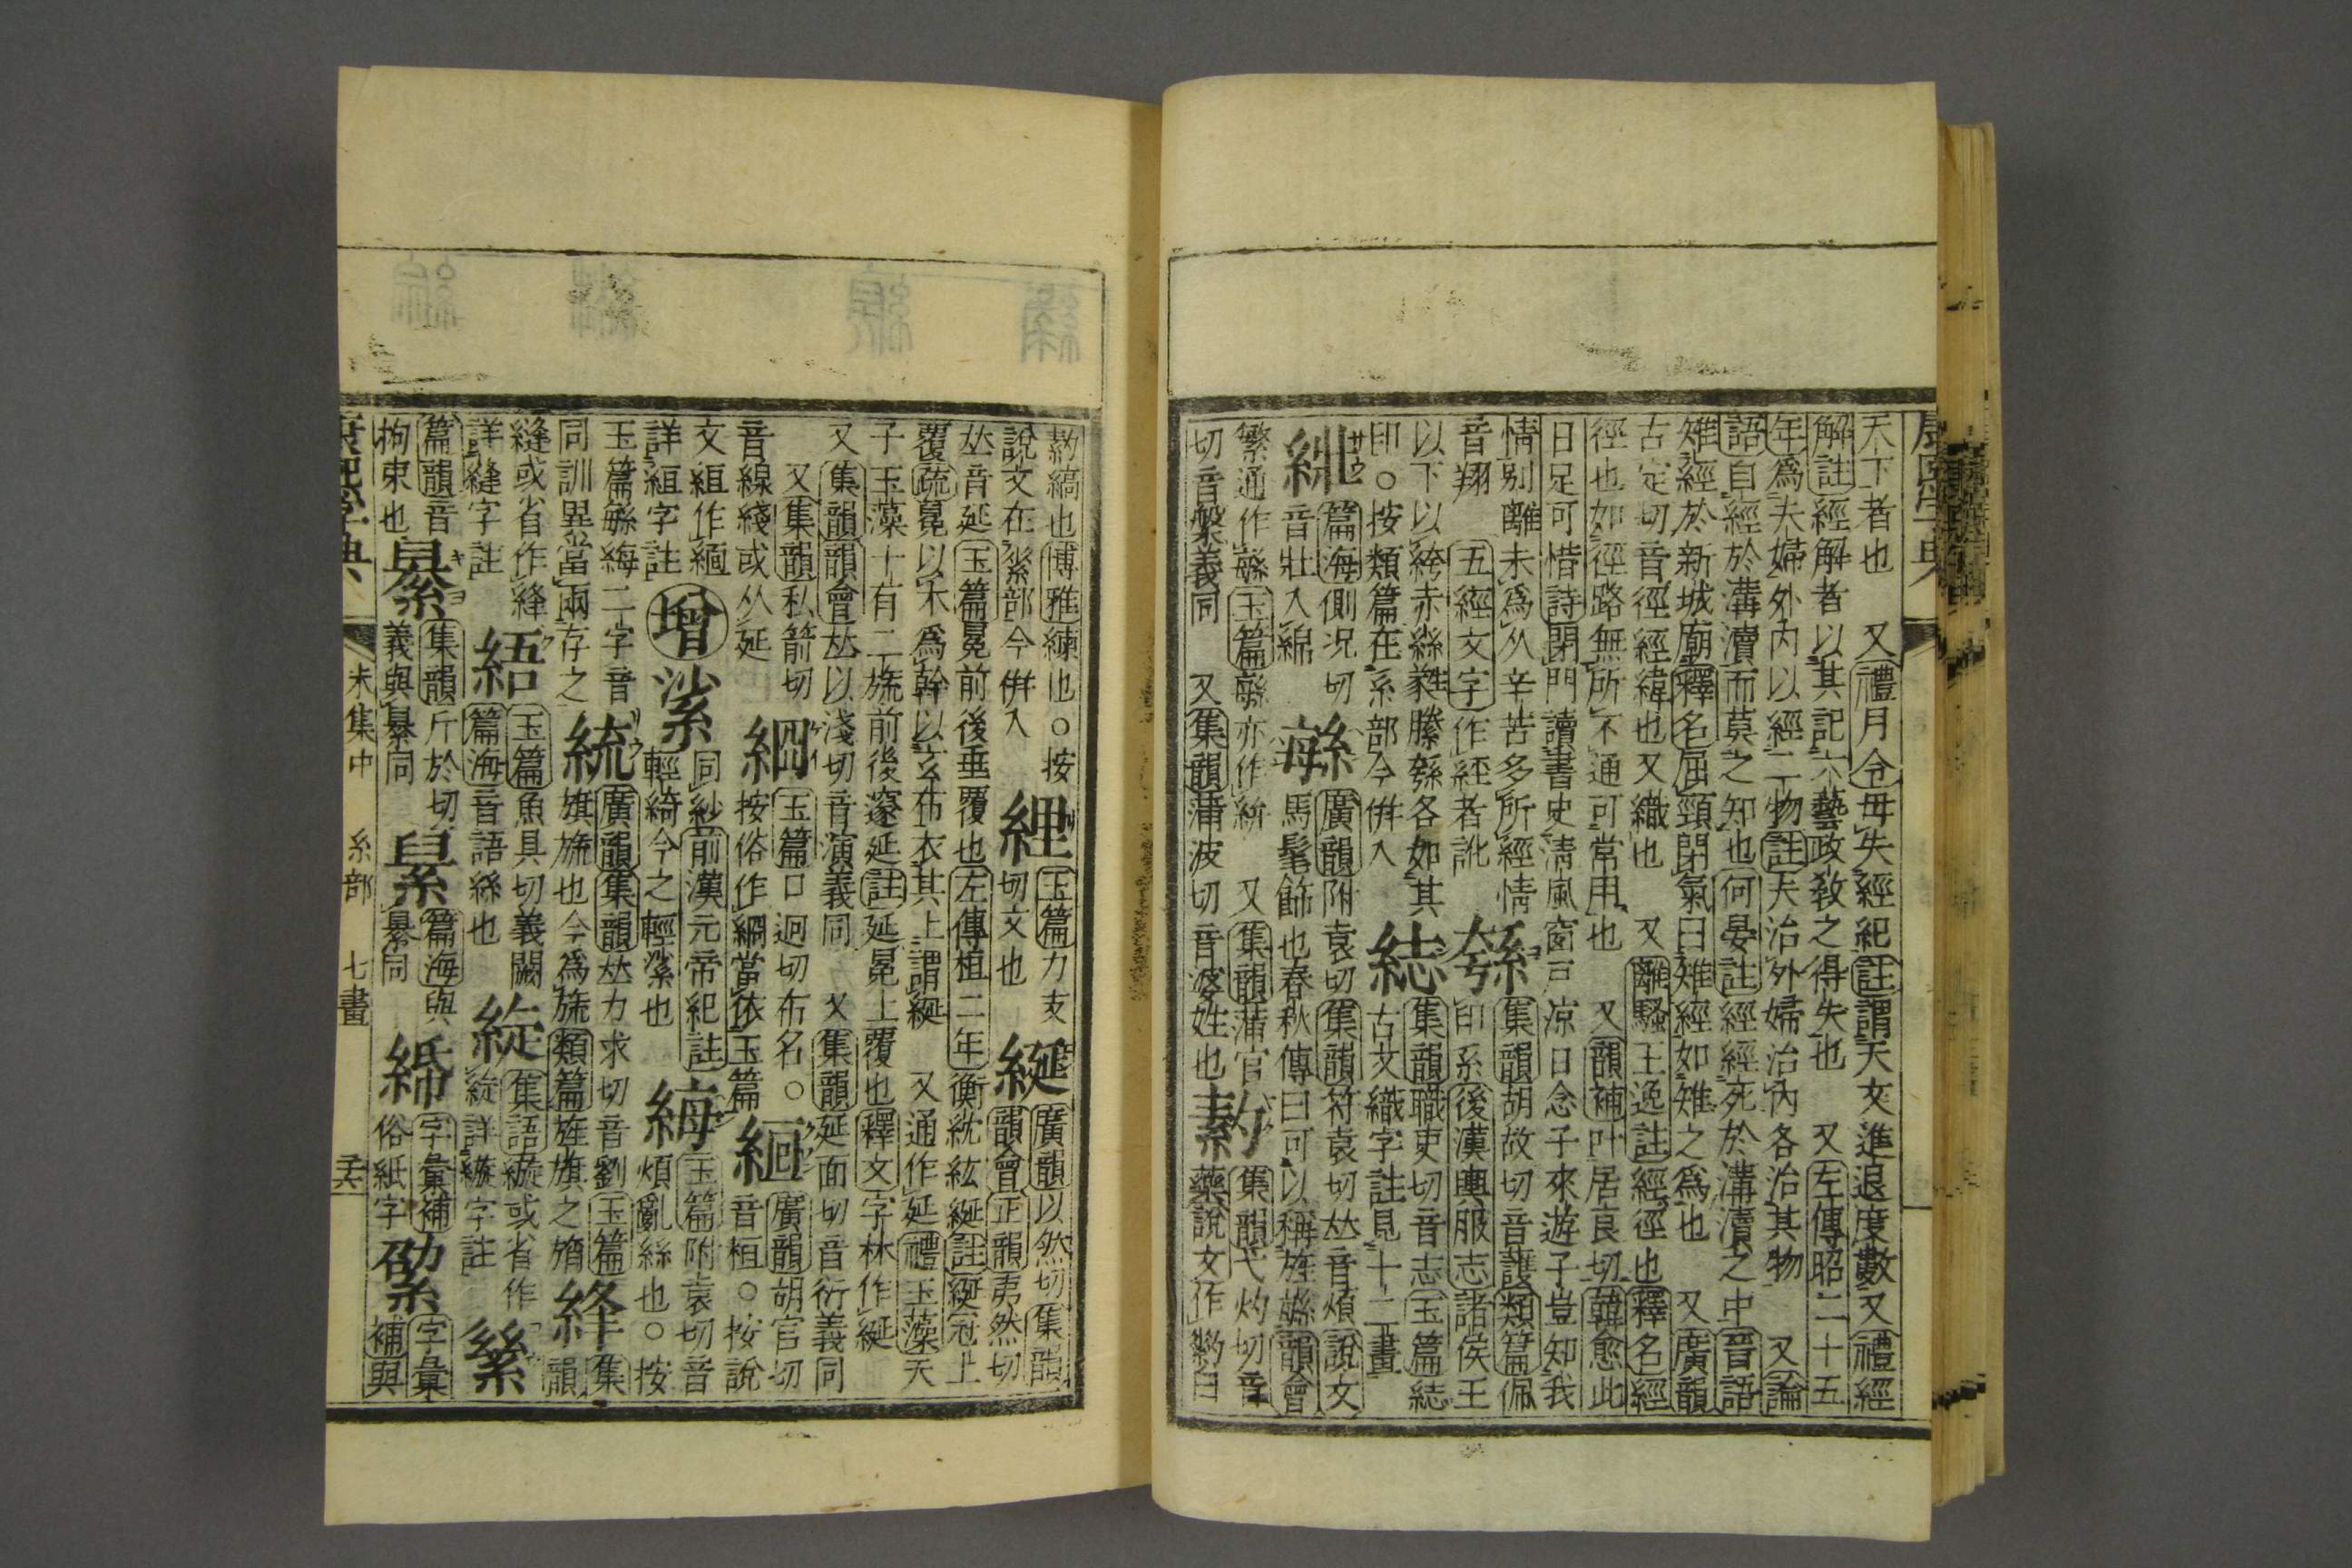 天下者也　又禮月令毋失經紀註謂天文進退度數又禮經
解註經解者以其記六藝政敎之得失也　又左傳昭二十五
年爲夫婦外內以經二物註夫治外婦治內各治其物　又論
語自經於溝瀆而莫之知也何晏註經經死於溝瀆之中晉語
雉經於新城廟釋名屈頸閉氣曰雉經如雉之爲也　又廣韻
古定切音徑經緯也又織也　又離騷王逸註經徑也釋名經
徑也如徑路無所不通可常用也　又韻補叶居良切韓愈此
日足可惜詩閉門讀書史淸風窗戸凉日念子來遊子豈知我
情別離未爲久辛苦多所經情
音翔　五經文字作經者訛
絝
集韻胡故切音護類篇佩
印系後漢輿服志諸侯王
以下以綔赤絲蕤縢綔各如其
印○按類篇在系部今倂入
綕
集韻職吏切音志玉篇綕
古文織字註見十二畫
篇海側况切
音壯入綿
緐
廣韻附袁切集韻符袁切𠀤音煩說文
馬髦飾也春秋傳曰可以稱旌緐韻會
繁通作緐玉篇緐亦作絣　又集韻蒲官
切音槃義同　又集韻蒲波切音婆姓也
集韻弋灼切音
藥說文作䋤白
䋤縞也博雅練也○按
說文在素部今倂入
綞
玉篇力支
切文也
綖
廣韻以然切集韻
韻會正韻夷然切
𠀤音延玉篇冕前後垂覆也左傳桓二年衡紞紘綖註綖冠上
覆疏冕以木爲幹以玄布衣其上謂綖　又通作延禮玉藻天
子玉藻十有二旒前後邃延註延冕上覆也釋文字林作綖
又集韻韻會𠀤以淺切音演義同　又集韻延面切音衍義同
又集韻私箭切
音線綫或从延
綗
玉篇口迥切布名○
按俗作綱當依玉篇
絙
廣韻胡官切
音桓○按說
文絙作縆
詳絙字註
增
䋾
同紗前漢元帝紀註
輕綺今之輕䋾也
䋣
玉篇附袁切音
煩亂絲也○按
玉篇緐䋣二字音
同訓異當兩存之
統
廣韻集韻𠀤力求切音劉玉篇
旗旒也今爲旒類篇旌旗之旓
綘
集韻
縫或省作綘
詳縫字註
䋴
玉篇魚具切義闕
篇海音語絲也
綻
集語縼或省作
綻詳縼字註
篇韻音
拘束也
綦
集韻斤於切
義與綦同
篇海與
綦同
綈
字彙補
俗紙字
字彙
補與
康熙字典
未集中　糸部　七畫